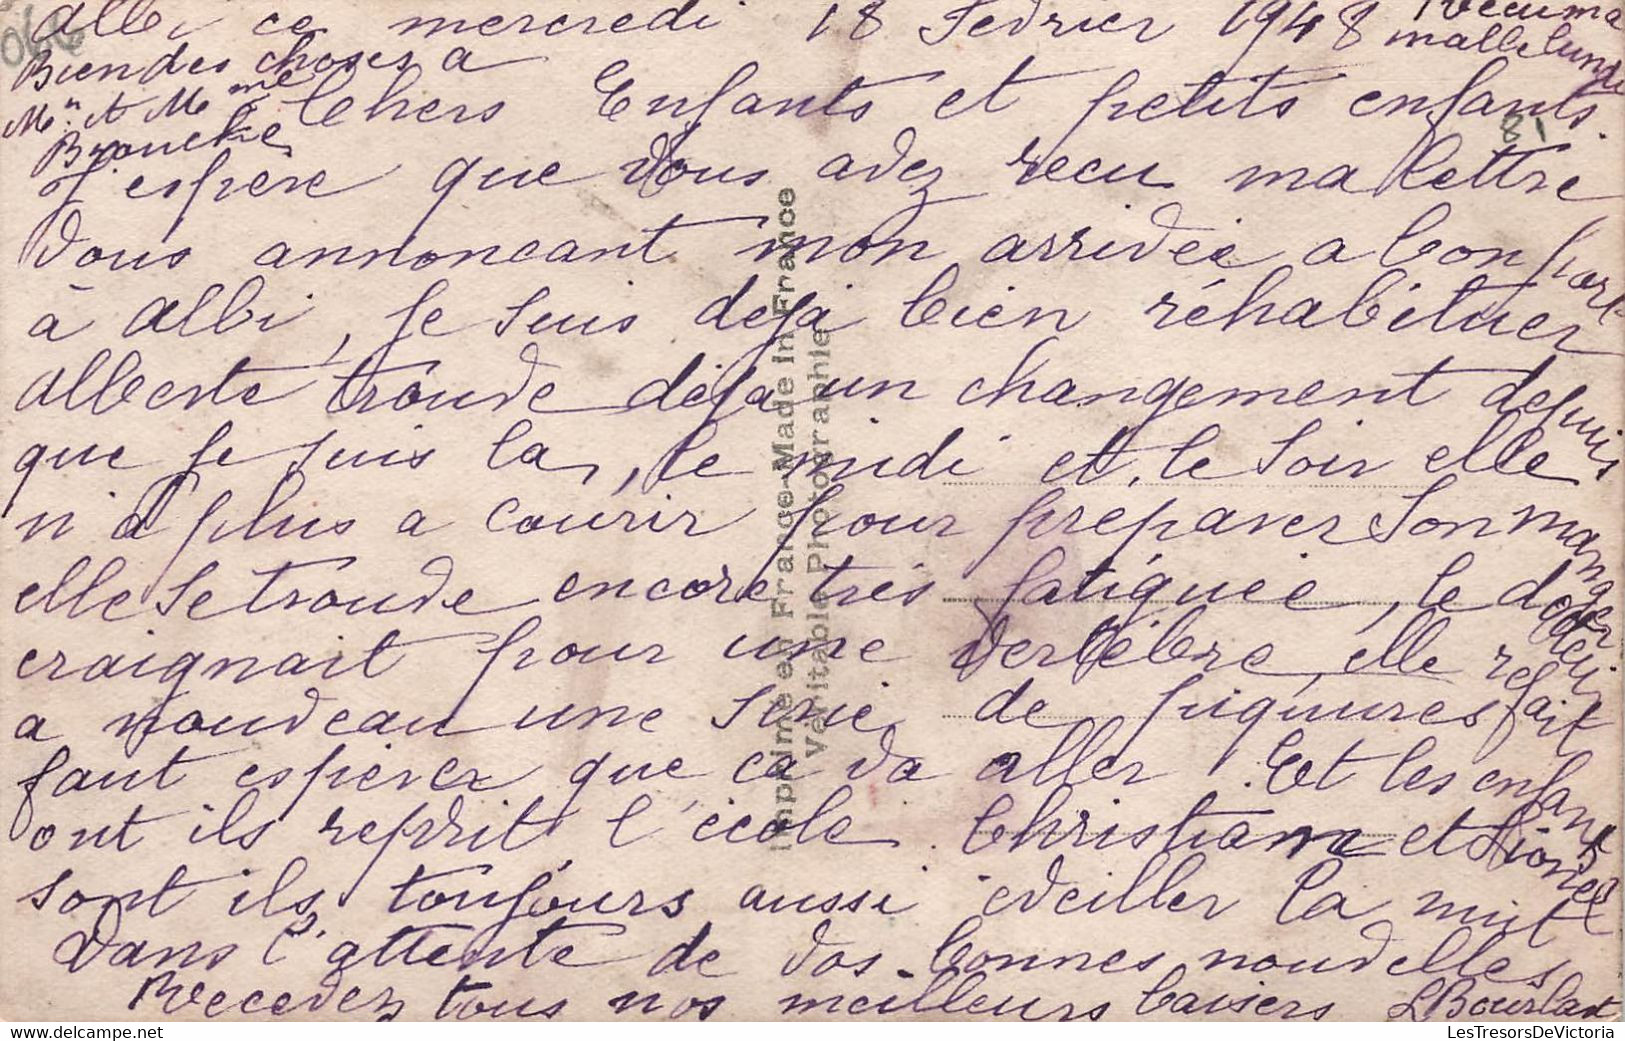 Albi ce mercredi 18 Fevrier 1948
Recu ma
malle lundi
Bien des choses a
Mr. et Mme
Brouche
Chers Enfants et petits enfants.
81
J'espere que vous avez recu ma lettre
vous annoncant mon arrivée a bon port
à Albi, je suis deja bien réhabituer
Alberte trouve déja un changement depuis
que je suis la, le midi et le soir elle
n'a plus a courir pour preparer son manger
elle se trouve encore très fatiguée, le docteur
craignait pour une vertèbre, elle refait
a nouveau une serie de piquures
faut esperer que ca va aller. Et les enfants
ont ils reprit l'école. Christiane et Lionel
sont ils toujours aussi eveiller la nuit
Dans l'attente de vos bonnes nouvelles
Recevez tous nos meilleurs baisers L Bourlart
Imprimé en France-Made in France
Véritable Photographie
LesTresorsDeVictoria